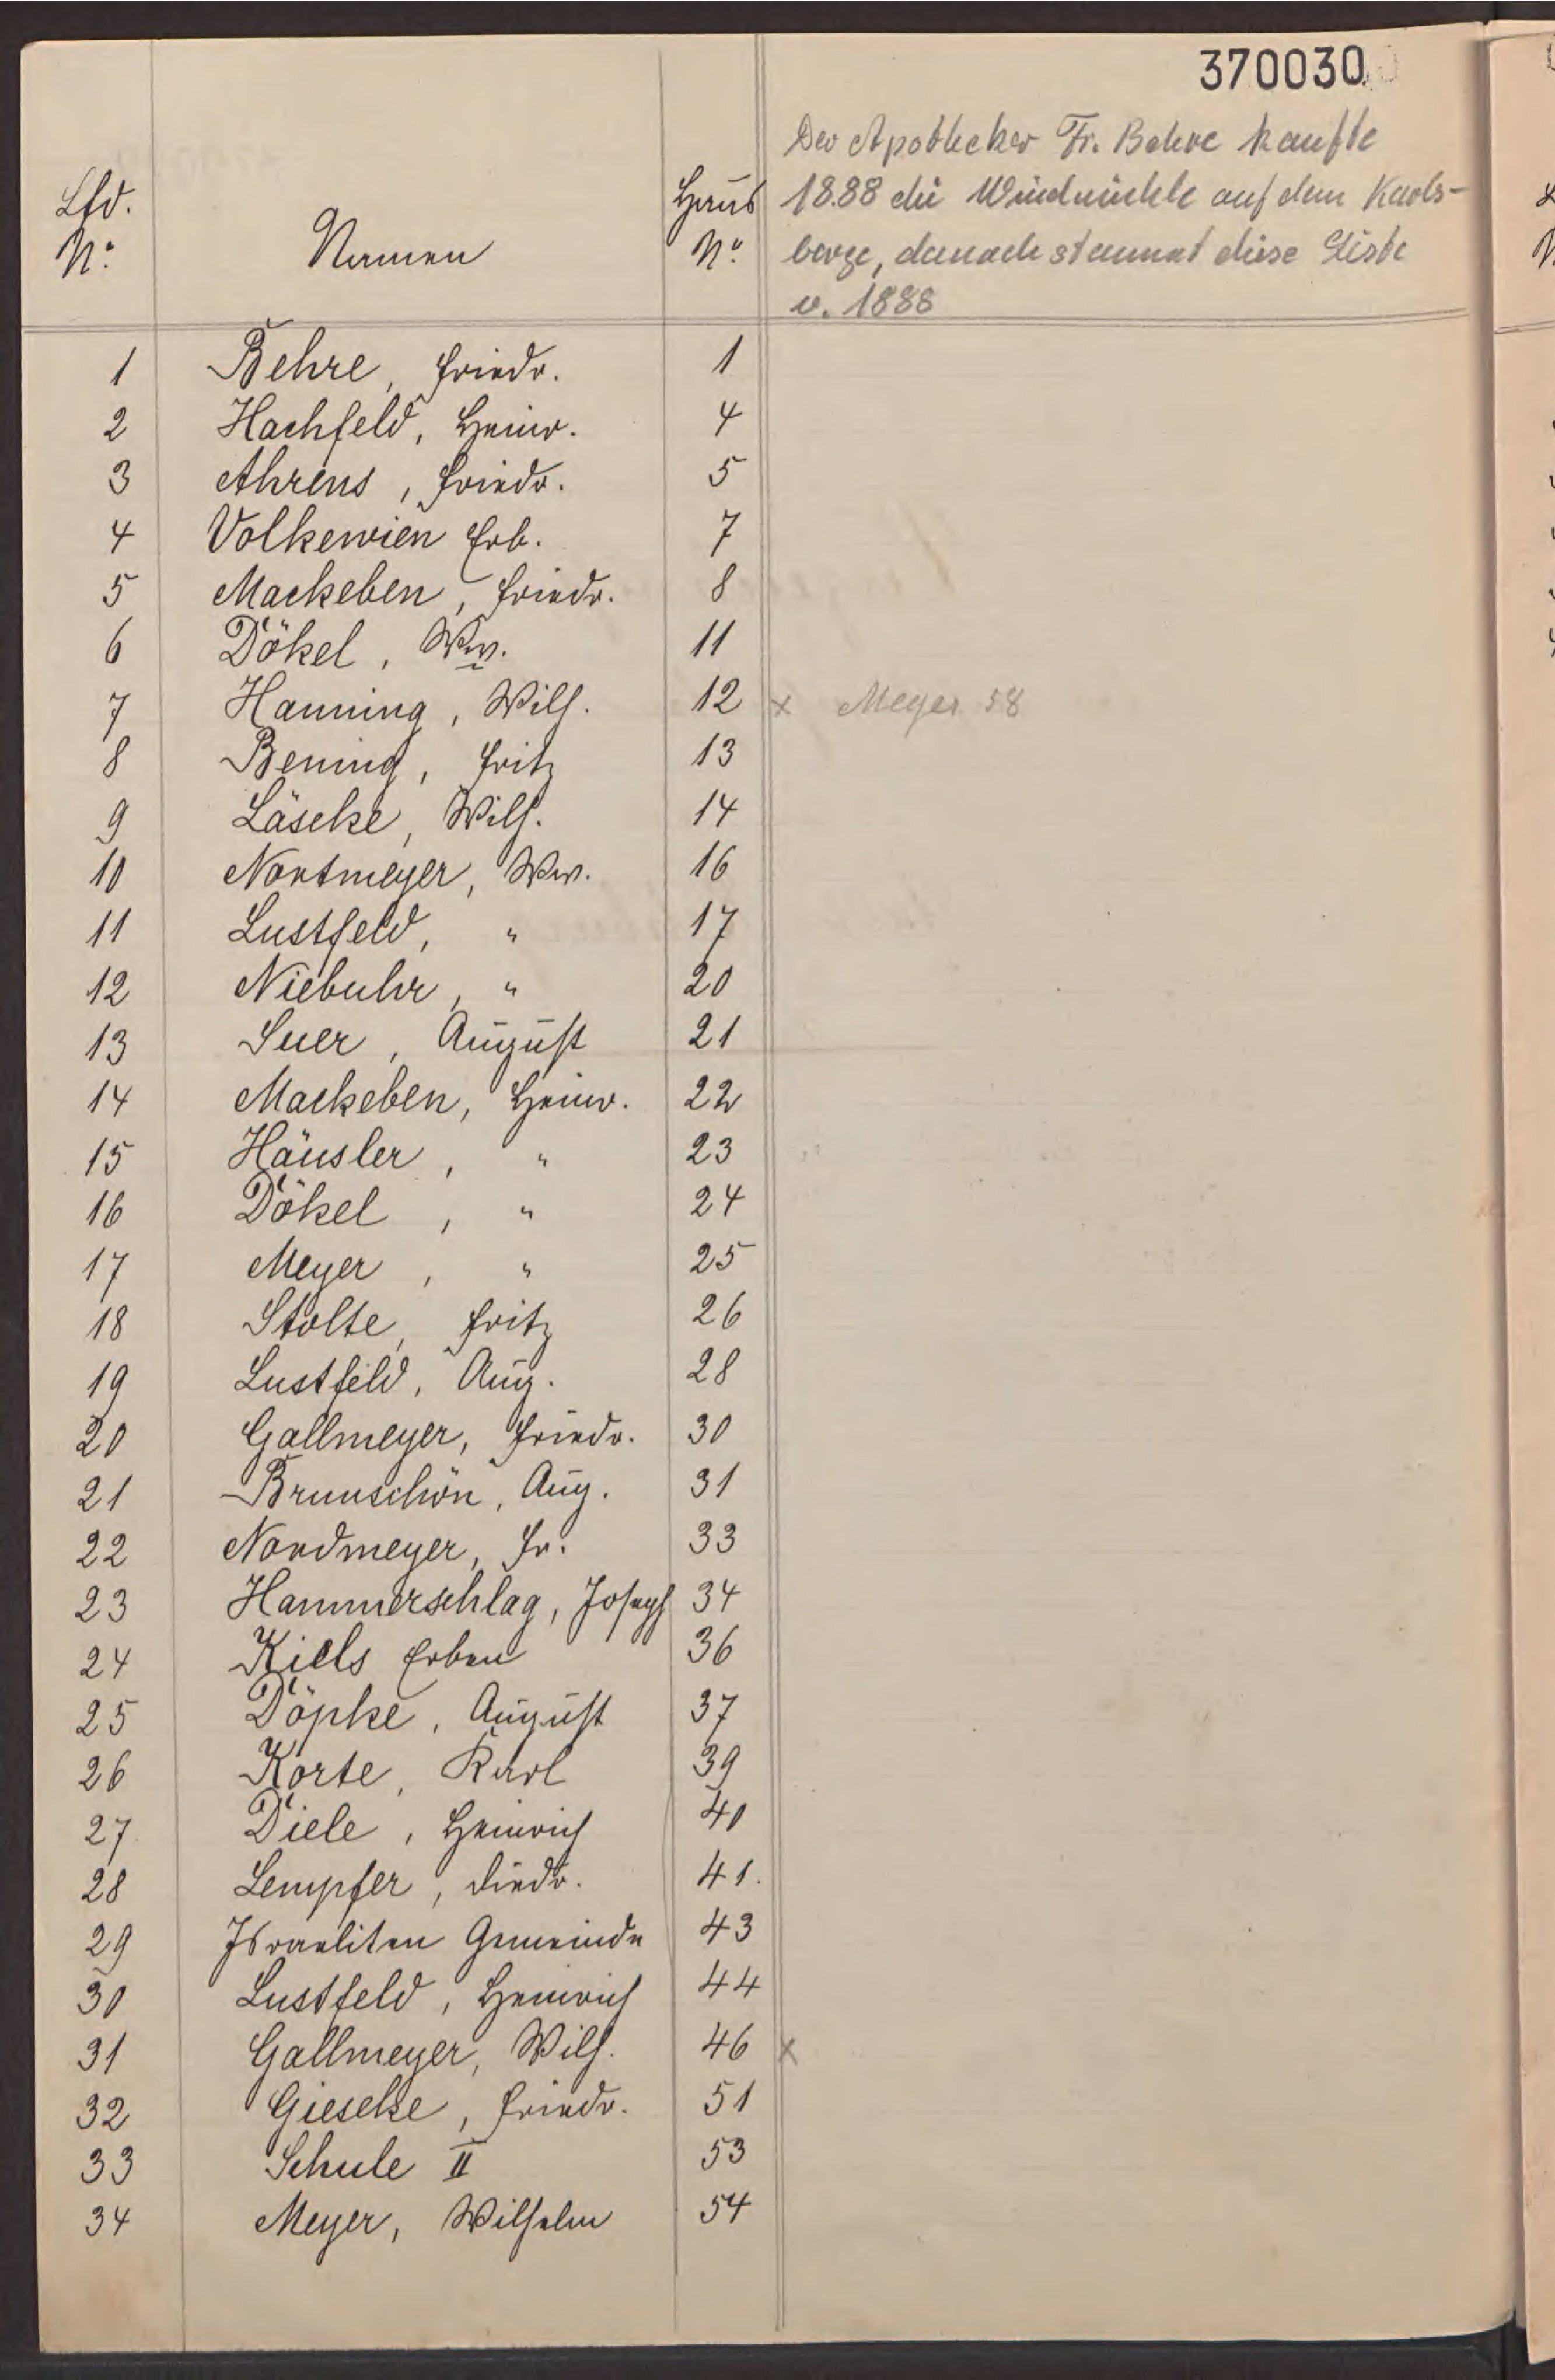 370030
Der Apotheker Fr. Behre kaufte
1888 die Windmühle auf dem Karls-
berge, danach stammt diese Liste
v. 1888
Lfd. No. Namen Haus No.
1 Behre, Friedr. 1
2 Hachfeld, Heinr. 4
3 Ahrens, Friedr. 5
4 Volkewien Erb. 7
5 Mackeben, Friedr. 8
6 Dökel, Ww. 11
7 Hanning, Wilh. 12 x Meyer 58
8 Bening, Fritz 13
9 Läseke, Wilh. 14
10 Nortmeyer, Ww. 16
11 Lustfeld, " 17
12 Niebuhr, " 20
13 Suer, August 21
14 Mackeben, Heinr. 22
15 Häusler, " 23
16 Dökel, " 24
17 Meyer, " 25
18 Stolte, Fritz 26
19 Lustfeld, Aug. 28
20 Gallmeyer, Friedr. 30
21 Brunschön, Aug. 31
22 Nordmeyer, Fr. 33
23 Hammerschlag, Joseph 34
24 Kiels Erben 36
25 Döpke, August 37
26 Korte, Karl 39
27 Diele, Heinrich 40
28 Lempfer, Diedr. 41.
29 Israeliten Gemeinde 43
30 Lustfeld, Heinrich 44
31 Gallmeyer, Wilh. 46 x
32 Gieseke, Friedr. 51
33 Schule II 53
34 Meyer, Wilhelm 54